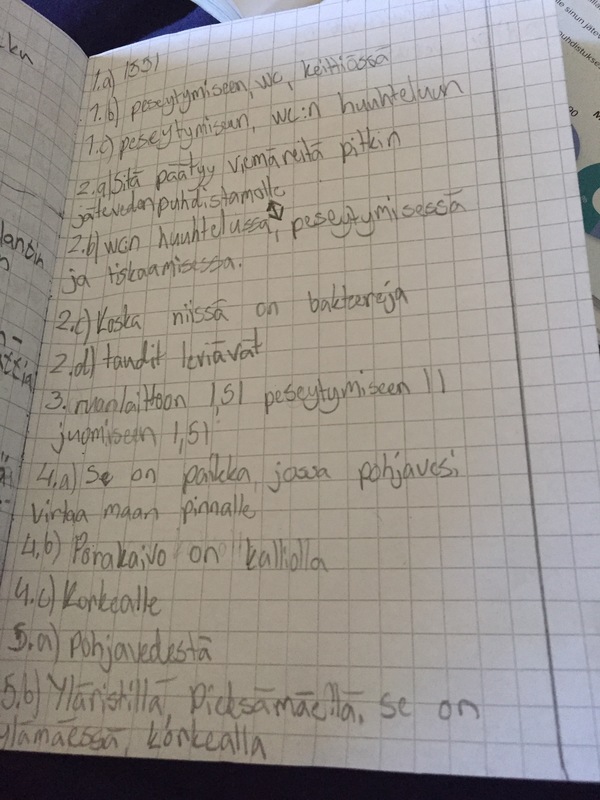 1.a) 155l
1.b) peseytymiseen, wc, keittiössä
1.c) peseytymiseen, wc:n huuhteluun
2.a) Sitä päätyy viemäreitä pitkin
jätevedenpuhdistamolle
2.b) wcn huuhtelussa, peseytymisessä
ja tiskaamisessa.
2.c) Koska niissä on baktereja
2.d) taudit leviävät
3. ruanlaittoon 1,5l peseytymiseen 1l
juomiseen 1,5l
4.a) Se on paikka, jossa pohjavesi
virtaa maan pinnalle
4.b) Porakaivo on kalliolla
4.c) Korkealle
5.a) Pohjavedestä
5.b) Yläristillä Pieksämäellä, se on
ylämäessä, korkealla